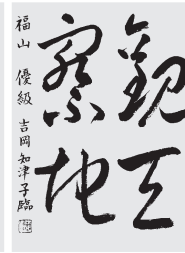 観天
察地
福山 優級 吉岡知津子臨